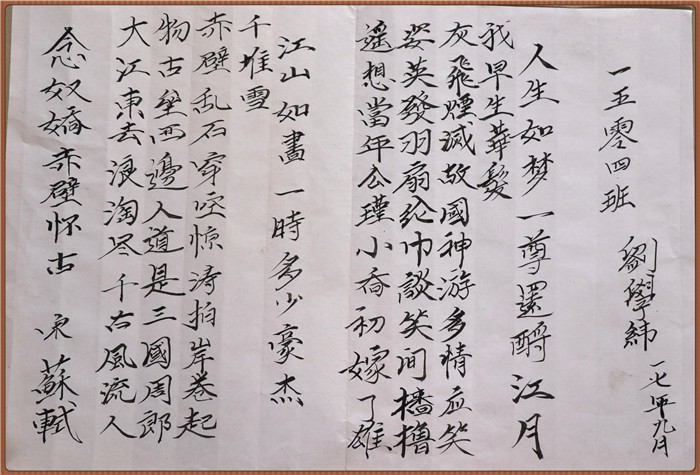 念奴嬌 赤壁怀古 宋 蘇軾
大江東去浪淘尽千古風流人
物古垒西邊人道是三國周郎
赤壁乱石穿空惊涛拍岸卷起
千堆雪
江山如畫一時多少豪杰
遥想當年公瑾小喬初嫁了雄
姿英發羽扇纶巾談笑间樯橹
灰飛煙滅故國神游多精应笑
我早生華髮
人生如梦一尊還酹江月
一五零四班 劉學緯 一七年九月